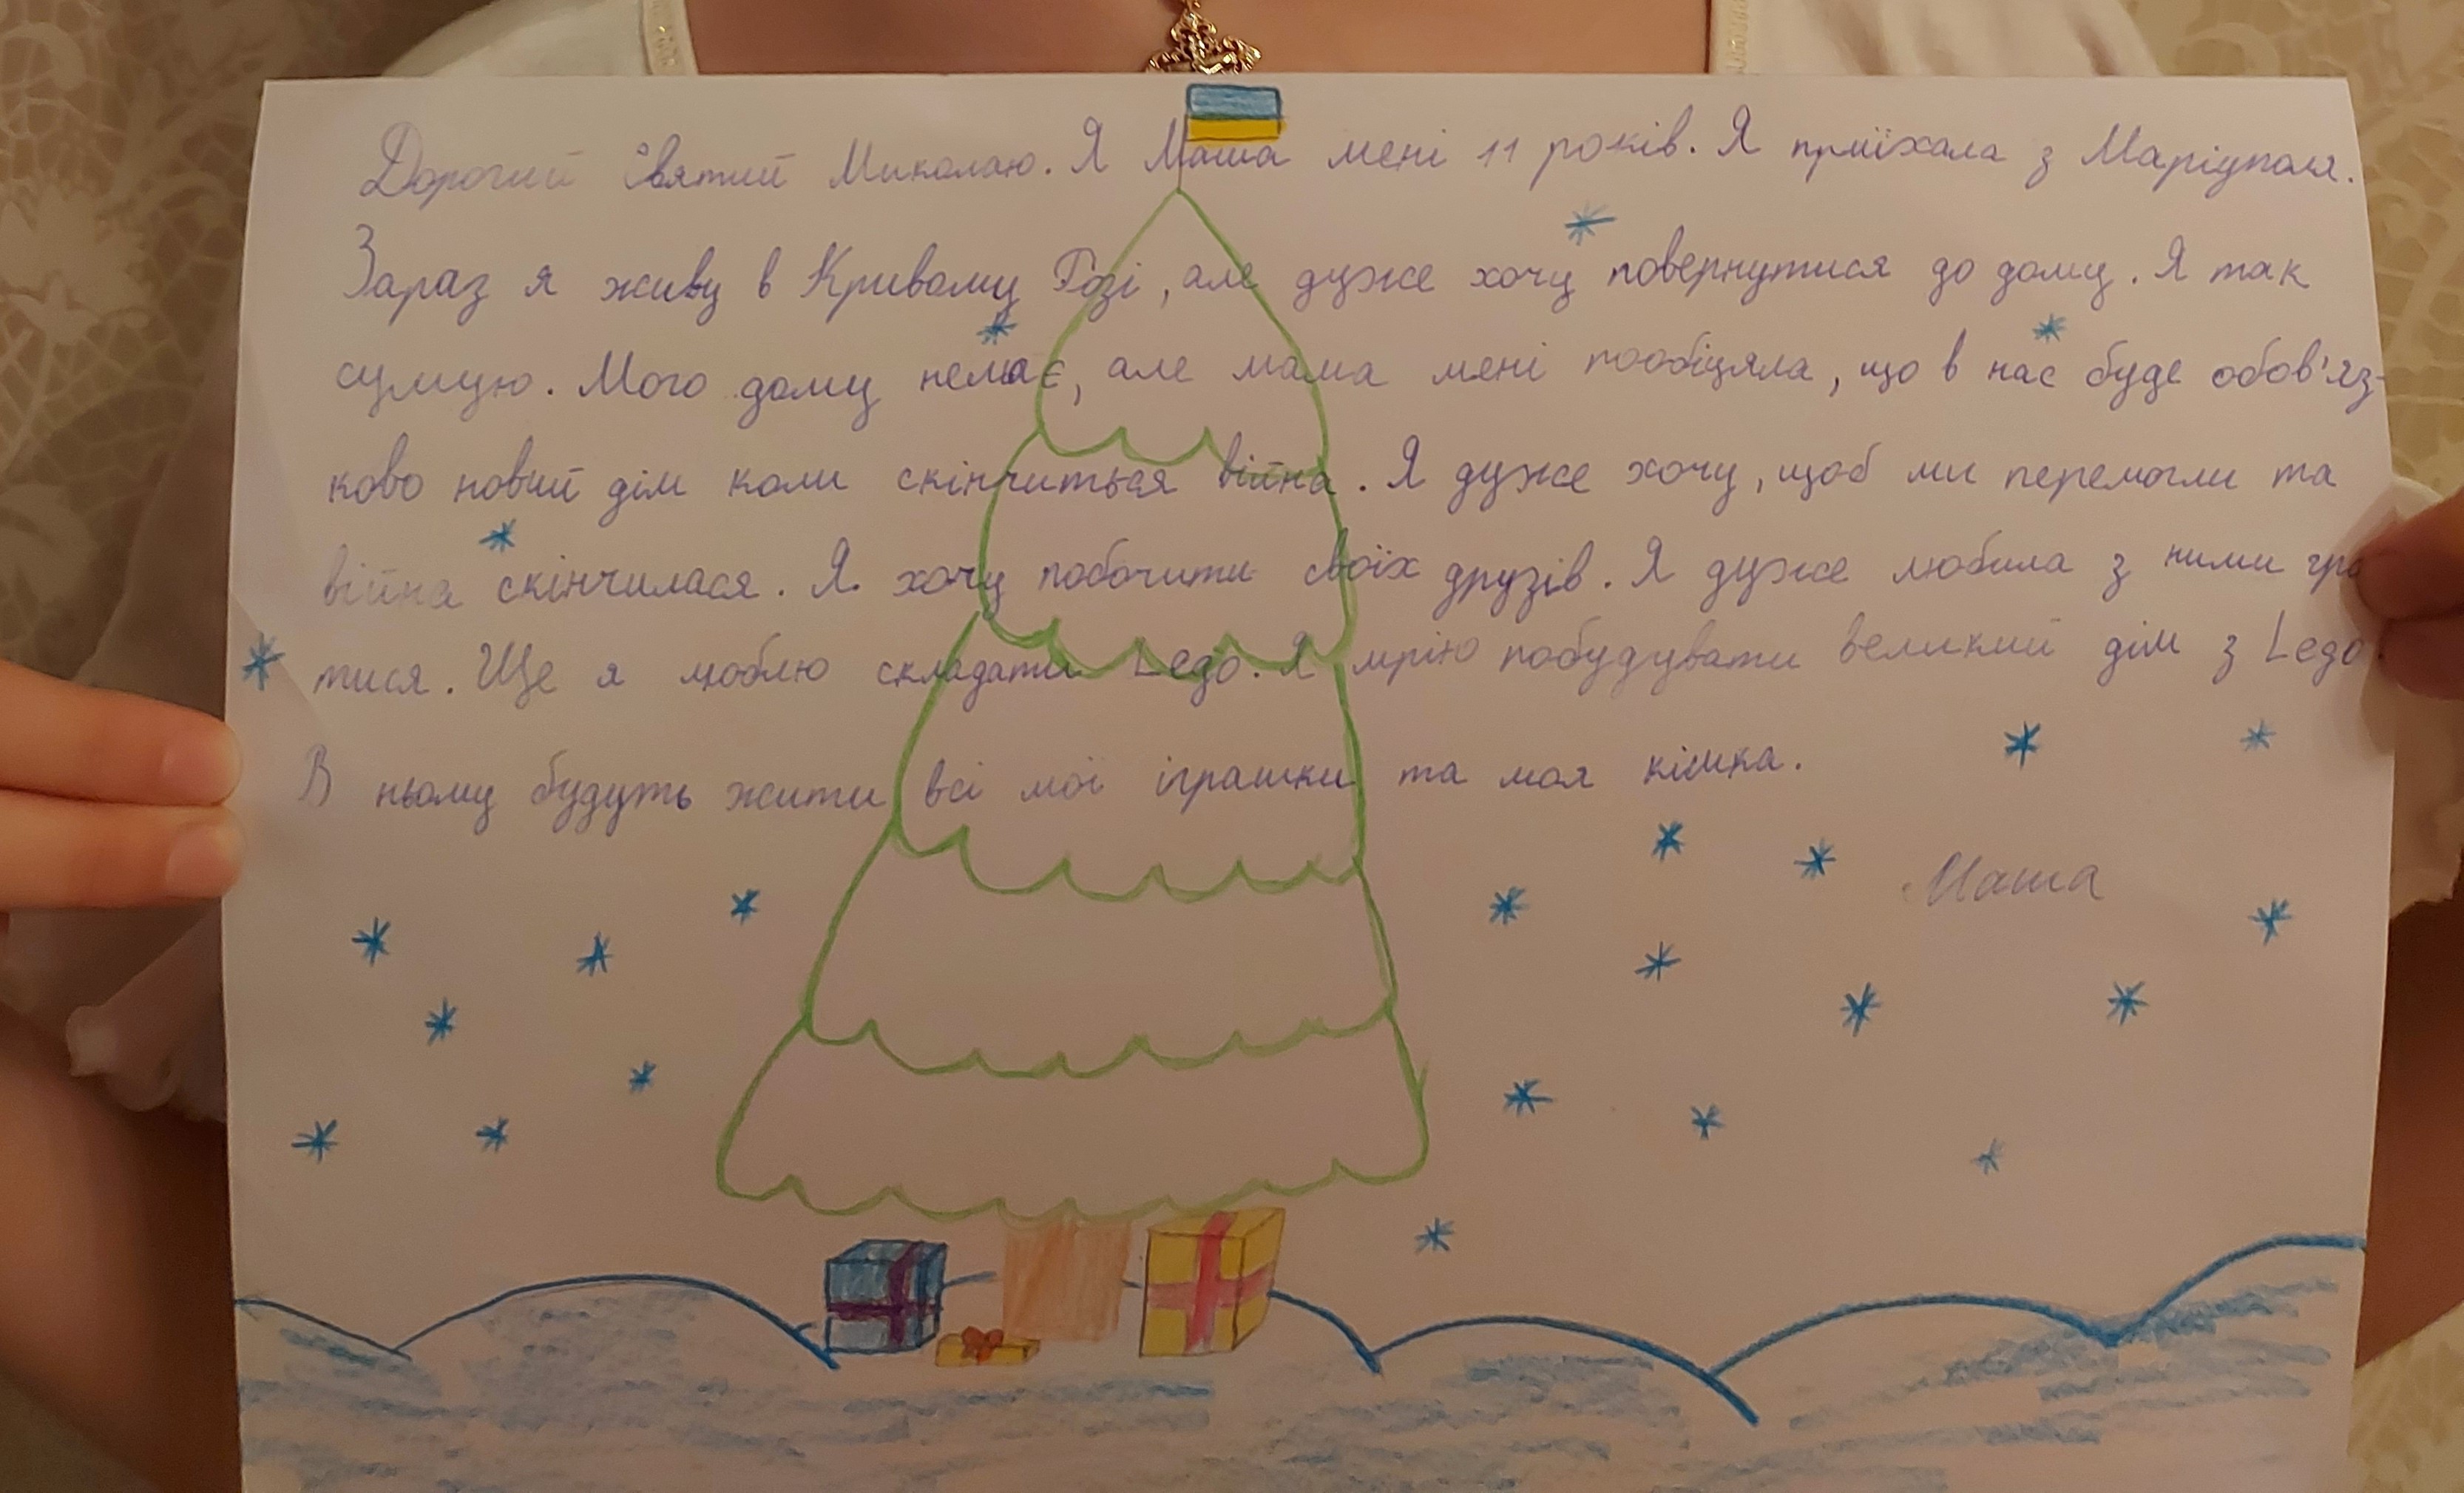 Дорогий Святий Миколаю. Я Маша мені 11 років. Я приїхала з Маріуполя.
Зараз я живу в Кривому Розі, але дуже хочу повернутися до дому. Я так
сумую. Мого дому немає, але мама мені пообіцяла, що в нас буде обов'яз-
ково новий дім коли скінчиться війна. Я дуже хочу, щоб ми перемогли та
війна скінчилася. Я хочу побачити своїх друзів. Я дуже любила з ними гра
тися. Ще я люблю складати Lego. Я мрію побудувати великий дім з Lego.
В ньому будуть жити всі мої іграшки та моя кішка.
Маша